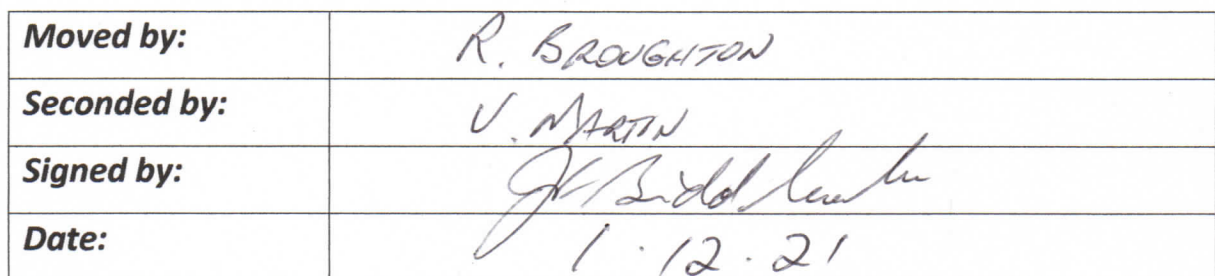 Moved by: R. BROUGHTON
Seconded by: V. MARTIN
Signed by:
Date: 1.12.21